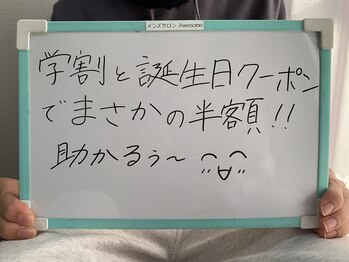 メンズサロン Awesome
学割と誕生日クーポン
でまさかの半額!!
助かるぅ〜